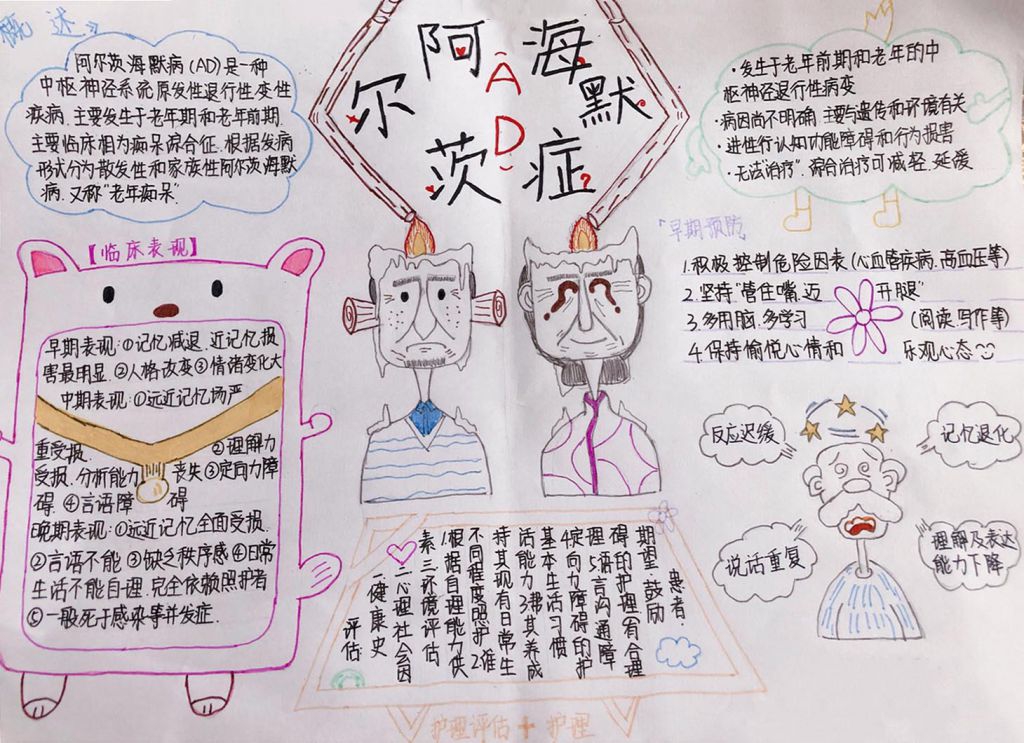 概述
阿尔茨海默病(AD)是一种
中枢神经系统原发性退行性变性
疾病.主要发生于老年期和老年前期.
主要临床相为痴呆综合征.根据发病
形式分为散发性和家族性阿尔茨海默
病.又称"老年痴呆".
阿尔茨海默症
AD
·发生于老年前期和老年的中
枢神经退行性病变
·病因尚不明确 主要与遗传和环境有关
·进性行认知功能障碍和行为损害
·无法治疗".综合治疗可减轻.延缓
【临床表现】
早期表现:①记忆减退.近记忆损
害最明显.②人格改变③情绪变化大
中期表现:①远近记忆场严
重受损. ②理解力
受损.分析能力 丧失③定向力障
碍.④言语障 碍
晚期表现:①远近记忆全面受损.
②言语不能③缺乏秩序感④日常
生活不能自理.完全依赖照护者
⑤一般死于感染等并发症.
「早期预防
1.积极控制危险因表(心血管疾病.高血压等)
2.坚持"管住嘴.迈 开腿"
3.多用脑.多学习 (阅读.写作等)
4.保持愉悦心情和 乐观心态
反应迟缓
记忆退化
说话重复
理解及表达
能力下降
评估
一健康史
二心理社会因
素 三环境评估
1根据自理能力供
不同程度照护 2维
持其现有日常生
活能力 3帮其养成
基本生活习惯
4定向力障碍的护
理 5语言沟通障
碍的护理(有合理
期望 鼓励
患者.
护理评估+护理